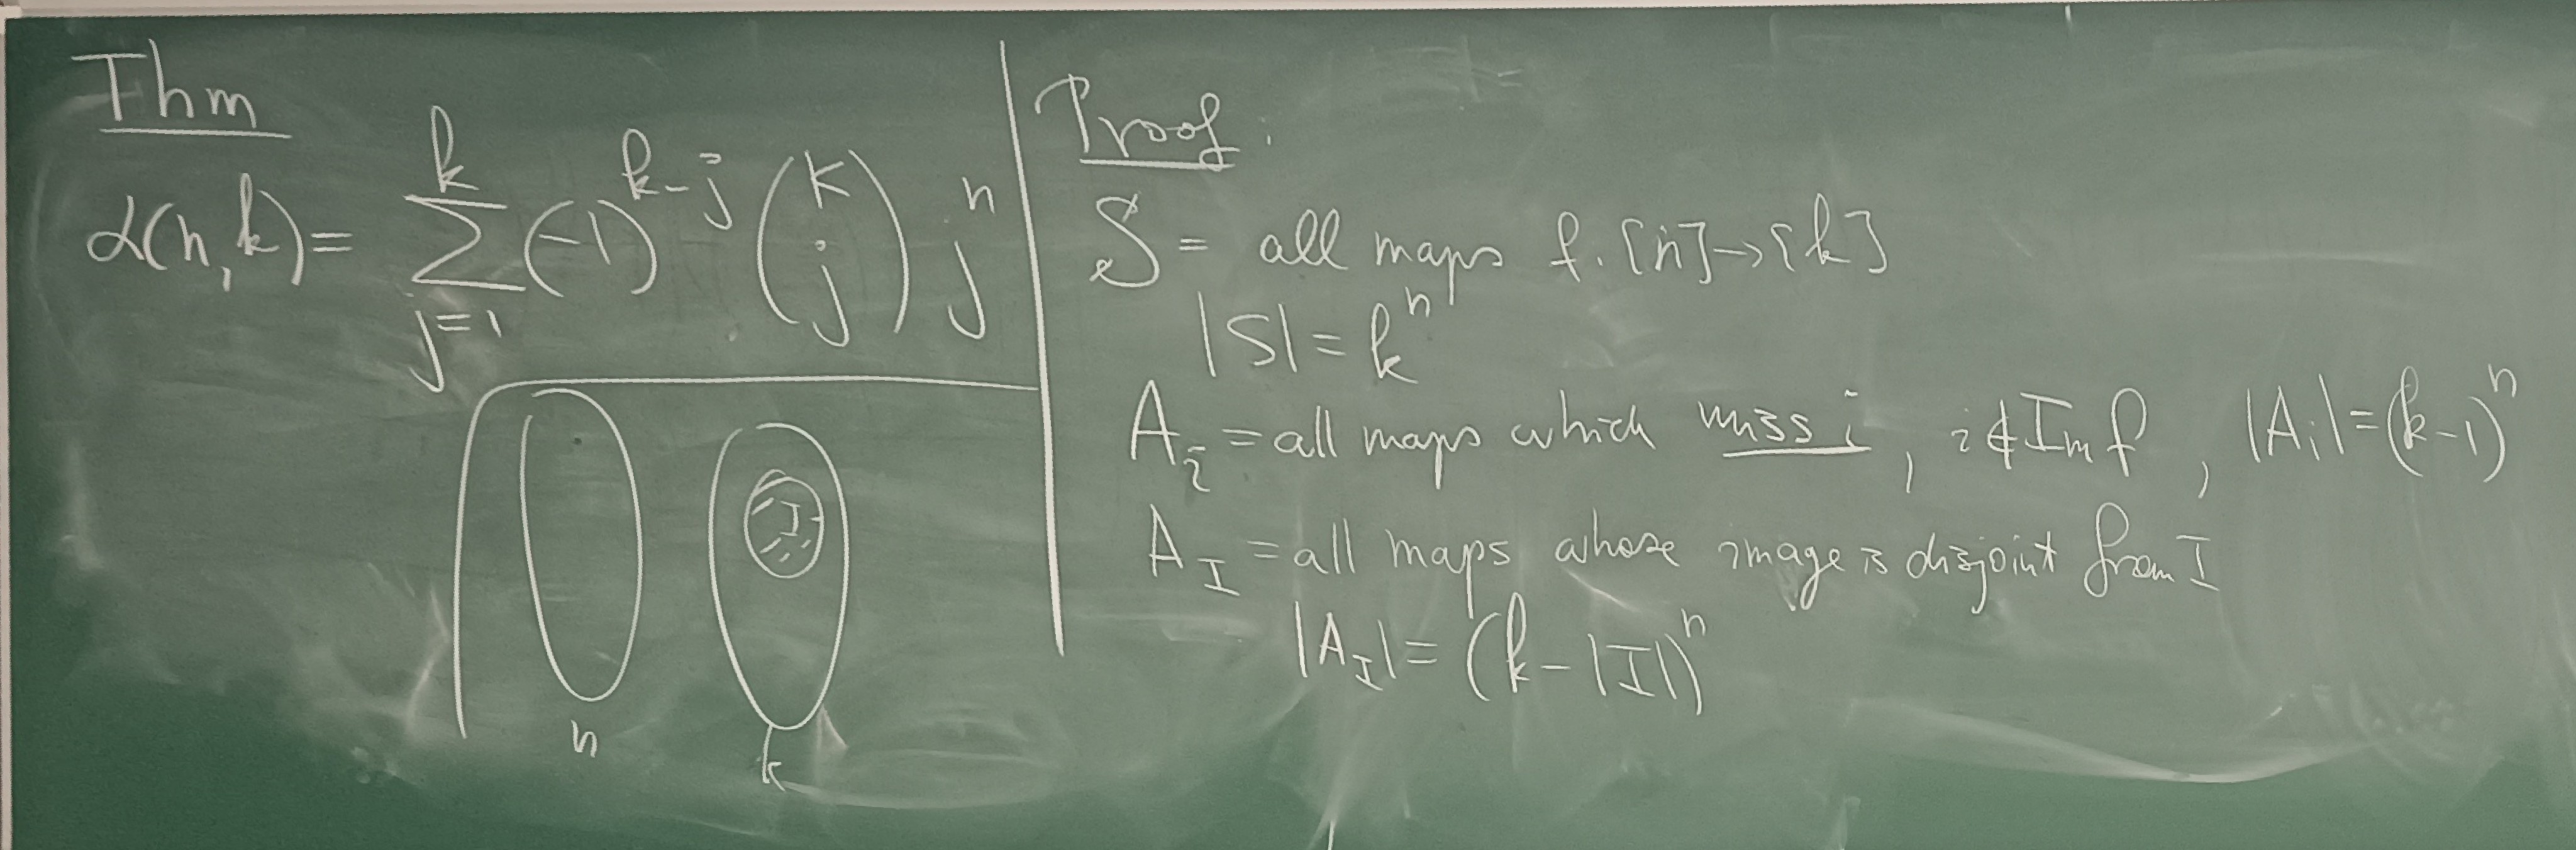 Thm
α(n,k) = \sum_{j=1}^{k} (-1)^{k-j} \binom{k}{j} j^n
I
n
k
Proof.
S = all maps f: [n]→[k]
|S| = k^n
A_i = all maps which miss i, i ∉ Im f, |A_i| = (k-1)^n
A_I = all maps whose image is disjoint from I
|A_I| = (k-|I|)^n